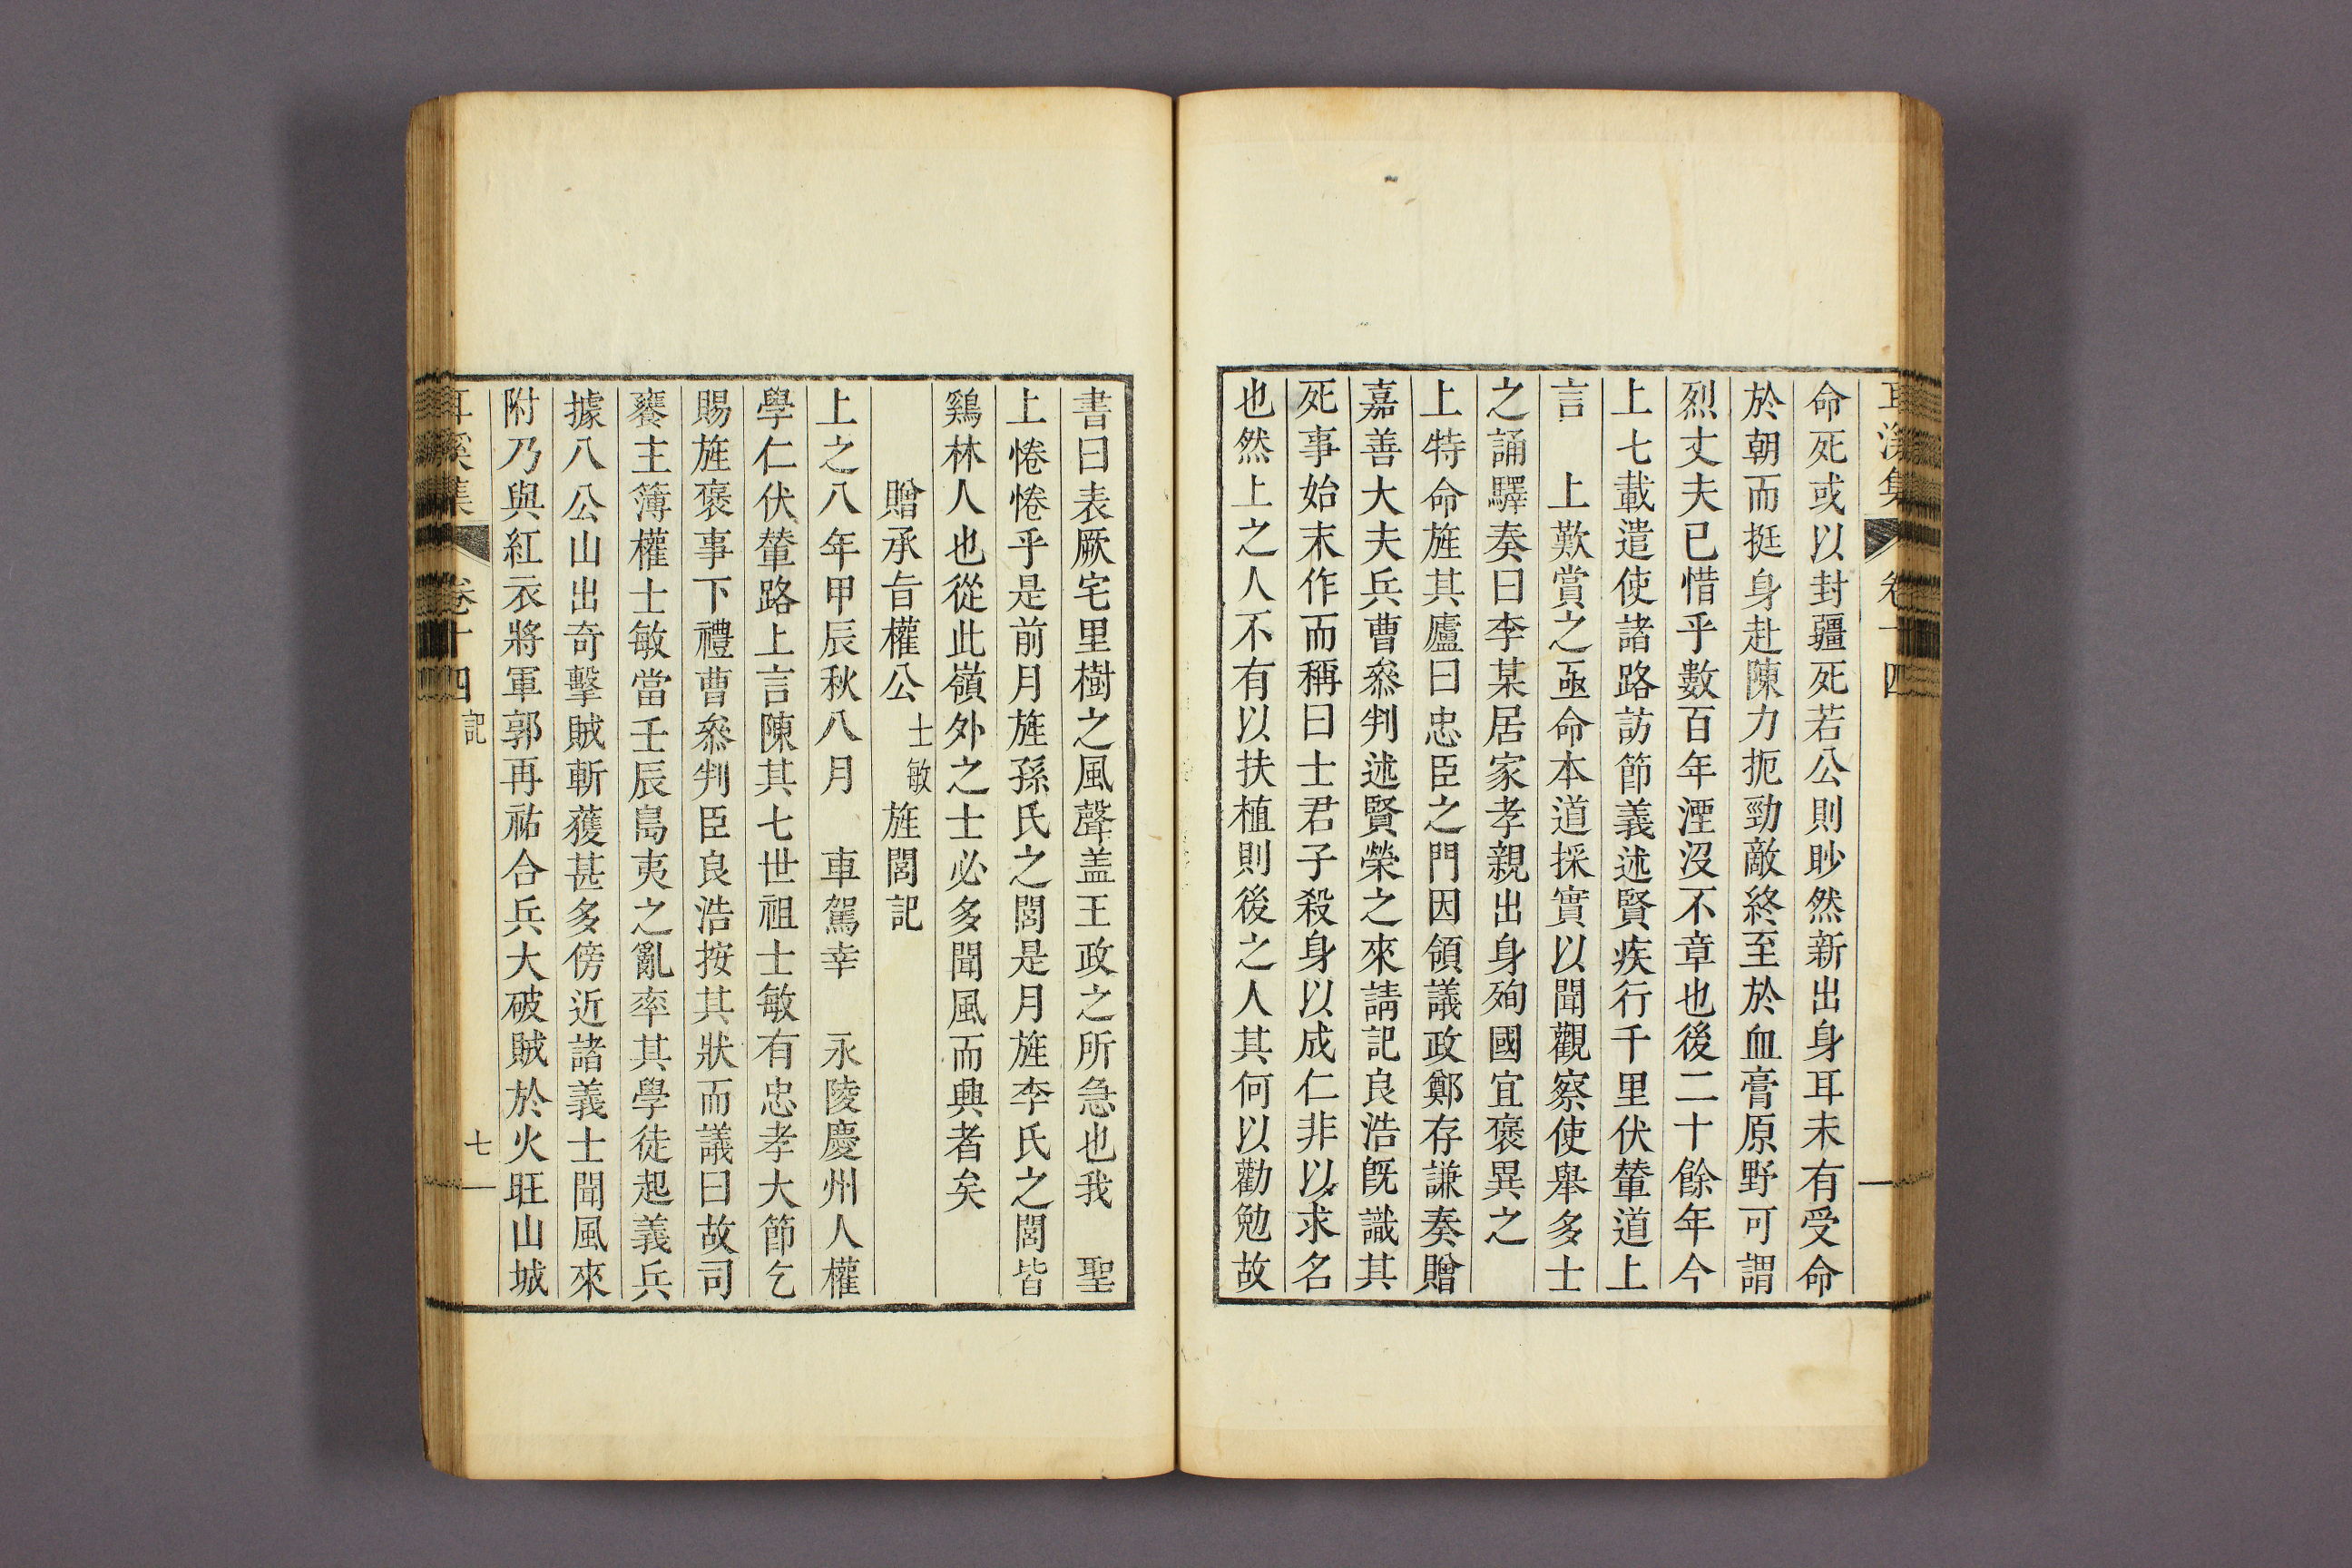 耳溪集 卷十四
命死或以封疆死若公則眇然新出身耳未有受命
於朝而挺身赴陳力扼勁敵終至於血膏原野可謂
烈丈夫已惜乎數百年湮沒不章也後二十餘年今
上七載遣使諸路訪節義述賢疾行千里伏輦道上
言 上歎賞之亟命本道採實以聞觀察使舉多士
之誦驛奏曰李某居家孝親出身殉國宜褒異之
上特命旌其廬曰忠臣之門因領議政鄭存謙奏贈
嘉善大夫兵曹叅判述賢榮之來請記良浩旣識其
死事始末作而稱曰士君子殺身以成仁非以求名
也然上之人不有以扶植則後之人其何以勸勉故
書曰表厥宅里樹之風聲盖王政之所急也我 聖
上惓惓乎是前月旌孫氏之閭是月旌李氏之閭皆
鷄林人也從此嶺外之士必多聞風而興者矣
贈承旨權公士敏旌閭記
上之八年甲辰秋八月 車駕幸 永陵慶州人權
學仁伏輦路上言陳其七世祖士敏有忠孝大節乞
賜旌褒事下禮曹叅判臣良浩按其狀而議曰故司
饔主簿權士敏當壬辰島夷之亂率其學徒起義兵
據八公山出奇擊賊斬獲甚多傍近諸義士聞風來
附乃與紅衣將軍郭再祐合兵大破賊於火旺山城
耳溪集 卷十四 記 七